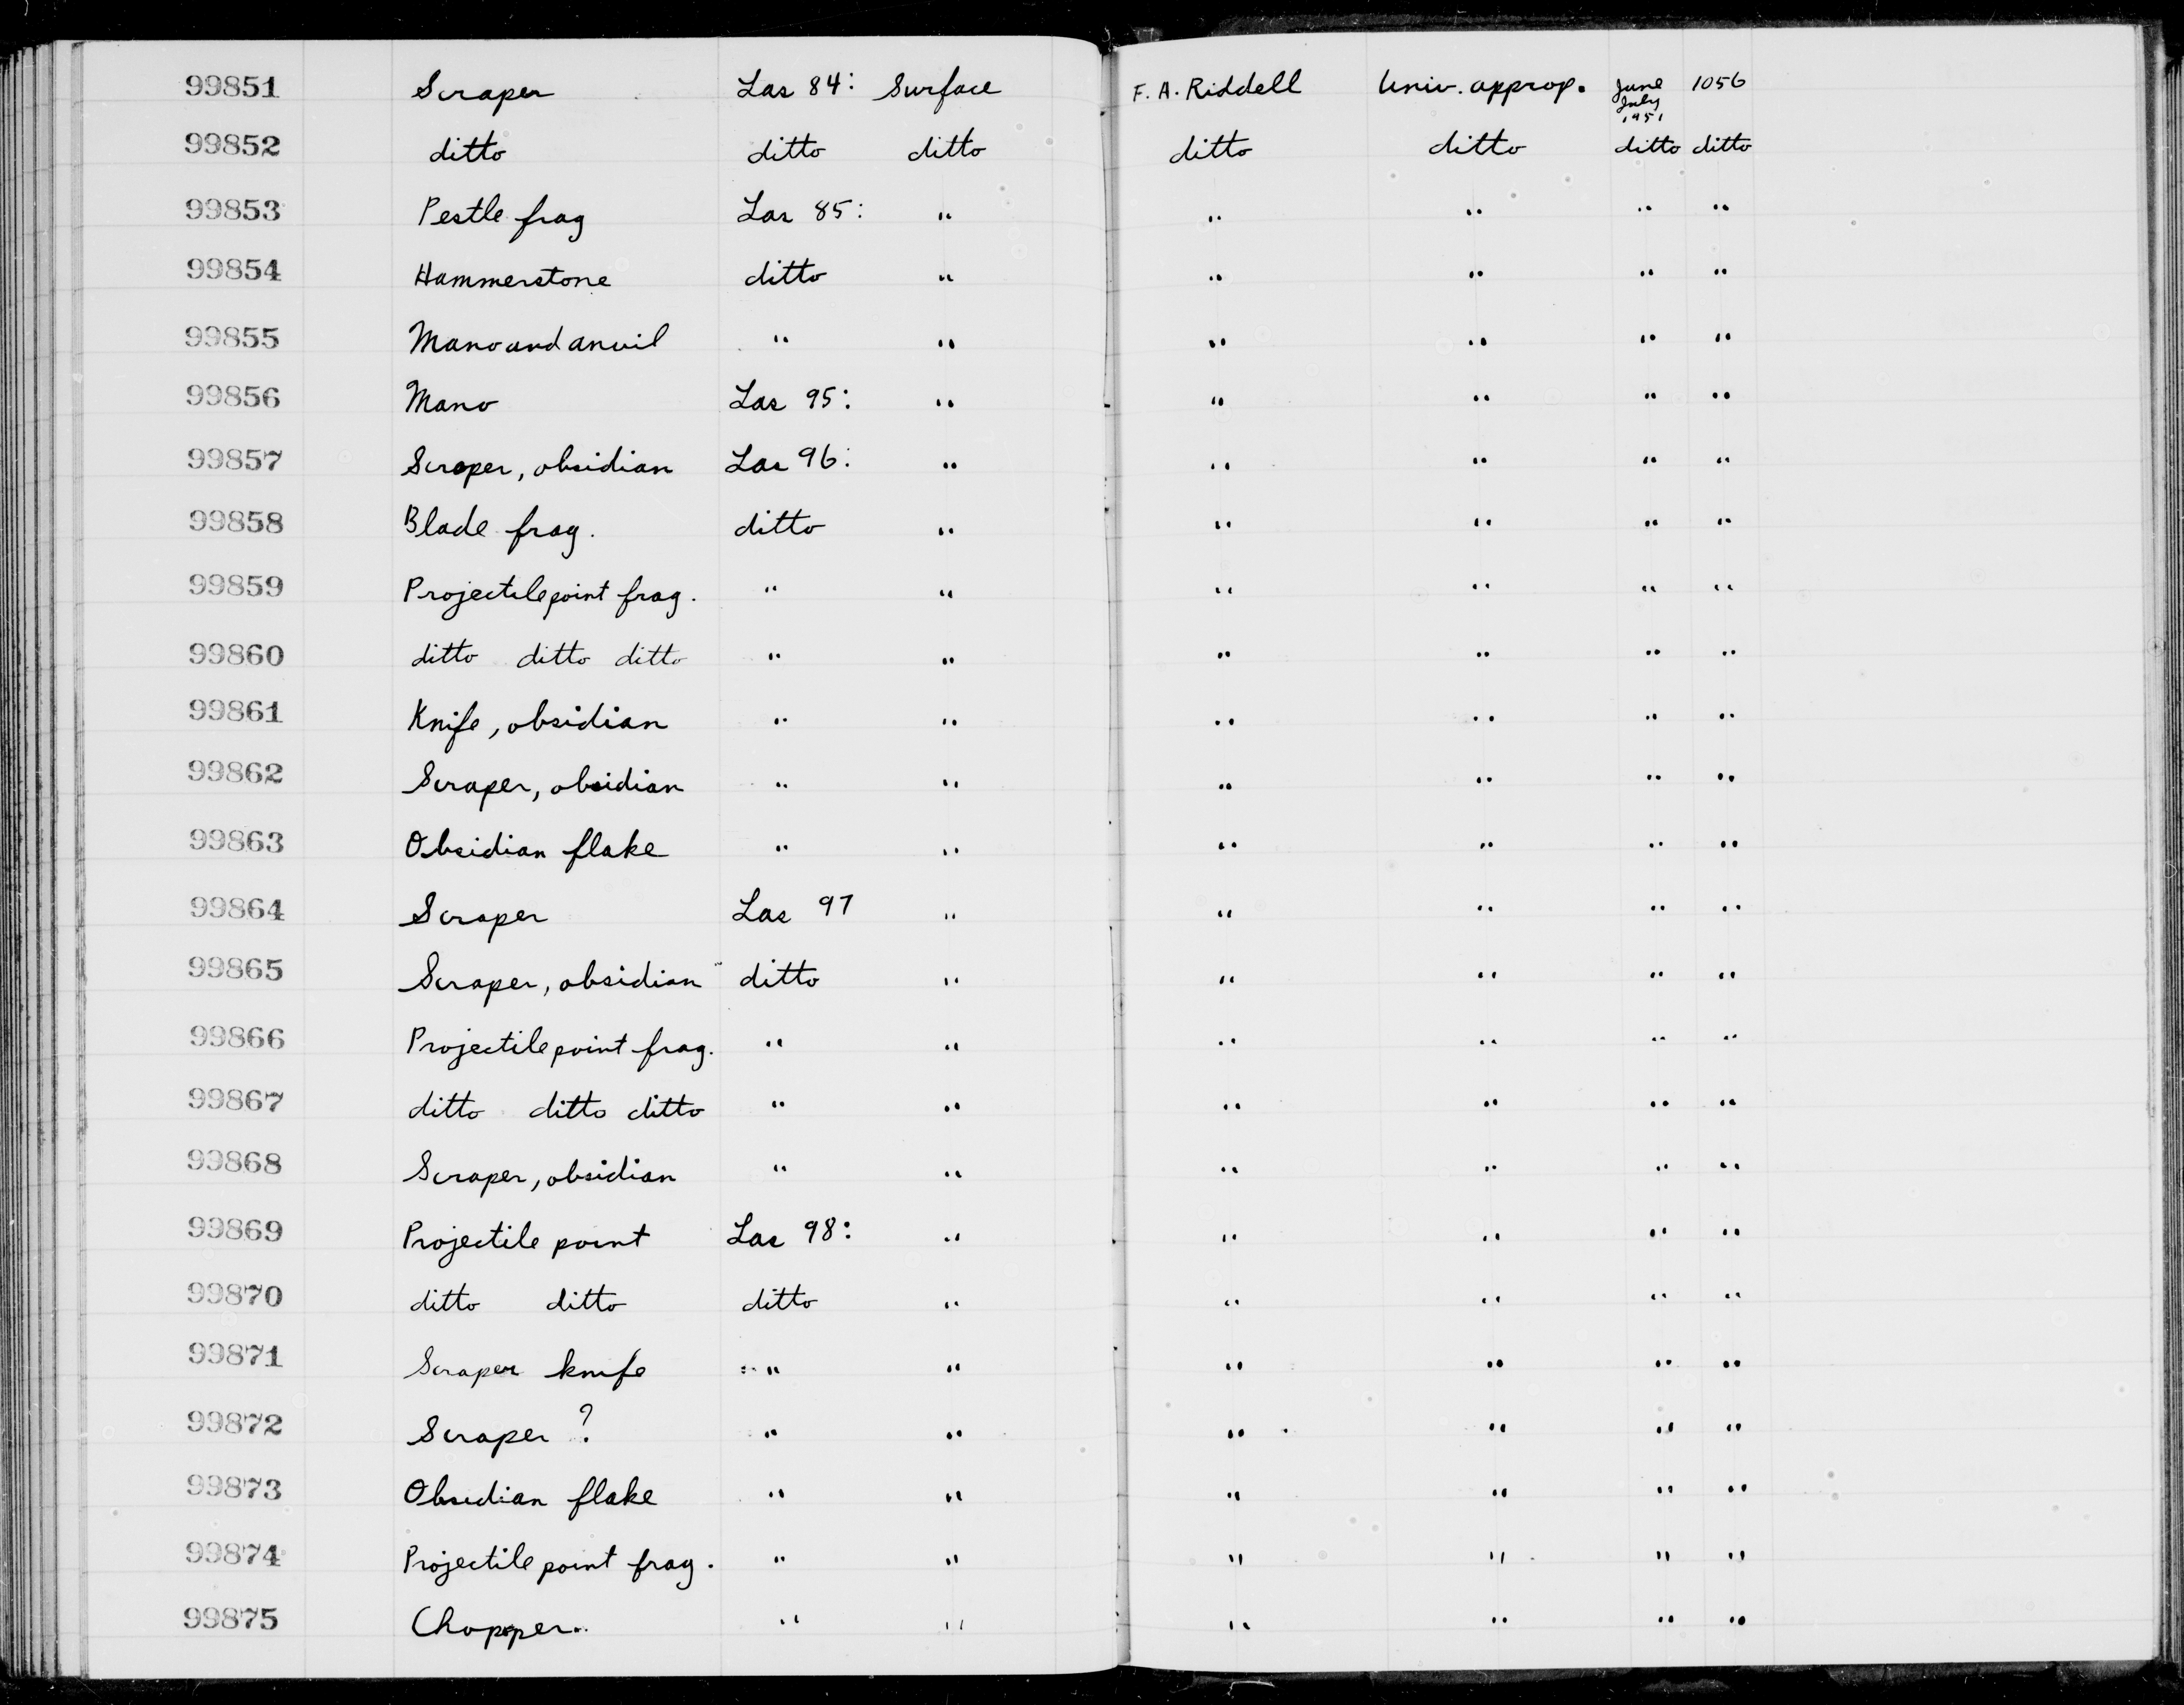 99851 Scraper Las 84: Surface F. A. Riddell Univ. approp. June July 1951 1056
99852 ditto ditto ditto ditto ditto ditto ditto
99853 Pestle frag Las 85: " " " " "
99854 Hammerstone ditto " " " " "
99855 Mano and anvil " " " " " "
99856 Mano Las 95: " " " " "
99857 Scraper, obsidian Las 96: " " " " "
99858 Blade frag. ditto " " " " "
99859 Projectile point frag. " " " " " "
99860 ditto ditto ditto " " " " " "
99861 Knife, obsidian " " " " " "
99862 Scraper, obsidian " " " " " "
99863 Obsidian flake " " " " " "
99864 Scraper Las 97 " " " " "
99865 Scraper, obsidian ditto " " " " "
99866 Projectile point frag. " " " " " "
99867 ditto ditto ditto " " " " " "
99868 Scraper, obsidian " " " " " "
99869 Projectile point Las 98: " " " " "
99870 ditto ditto ditto " " " " "
99871 Scraper knife " " " " " "
99872 Scraper ? " " " " " "
99873 Obsidian flake " " " " " "
99874 Projectile point frag. " " " " " "
99875 Chopper. " " " " " "